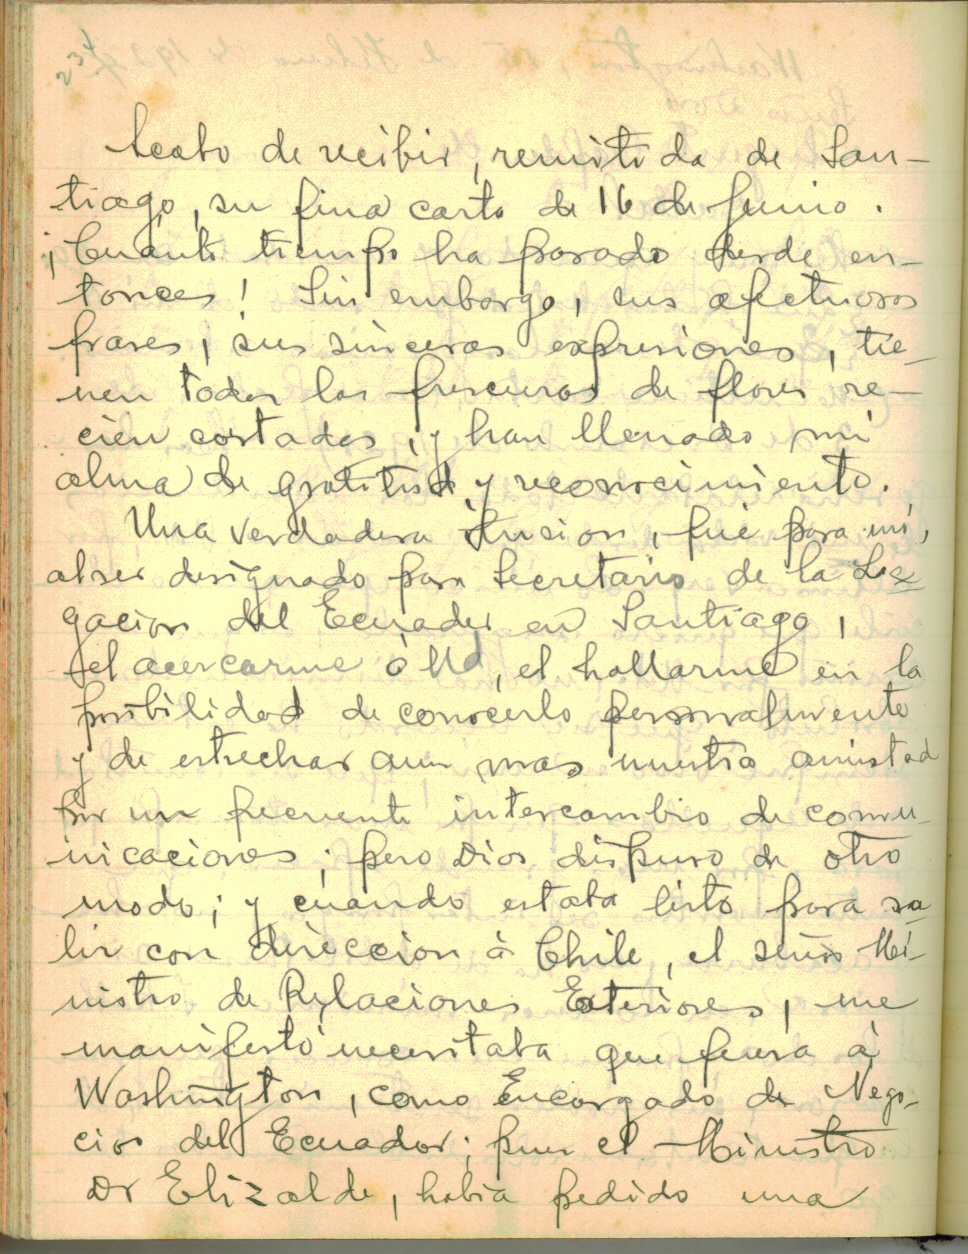 234
Acabo de recibir, remitida de San-
tiago, su fina carta de 16 de Junio.
¡Cuánto tiempo ha pasado desde en-
tonces! Sin embargo, sus afectuosas
frases, sus sinceras expresiones, tie-
nen todas las frescuras de flores re-
cien cortadas, y han llenado mi
alma de gratitud y reconocimiento.
Una verdadera ilusion, fué para mi,
al ser designado para Secretario de la Le-
gacion del Ecuador en Santiago,
el acercarme á Ud, el hallarme en la
posibilidad de conocerlo personalmente
y de estrechar aun mas nuestra amistad
por un frecuente intercambio de comu-
nicaciones; pero Dios dispuso de otro
modo; y cuando estaba listo para sa-
lir con direccion á Chile, el señor Mi-
nistro de Relaciones Exteriores, me
manifestó necesitaba que fuera á
Washington, como Encargado de Nego-
cios del Ecuador; pues el Ministro
Dr Elizalde, habia pedido una